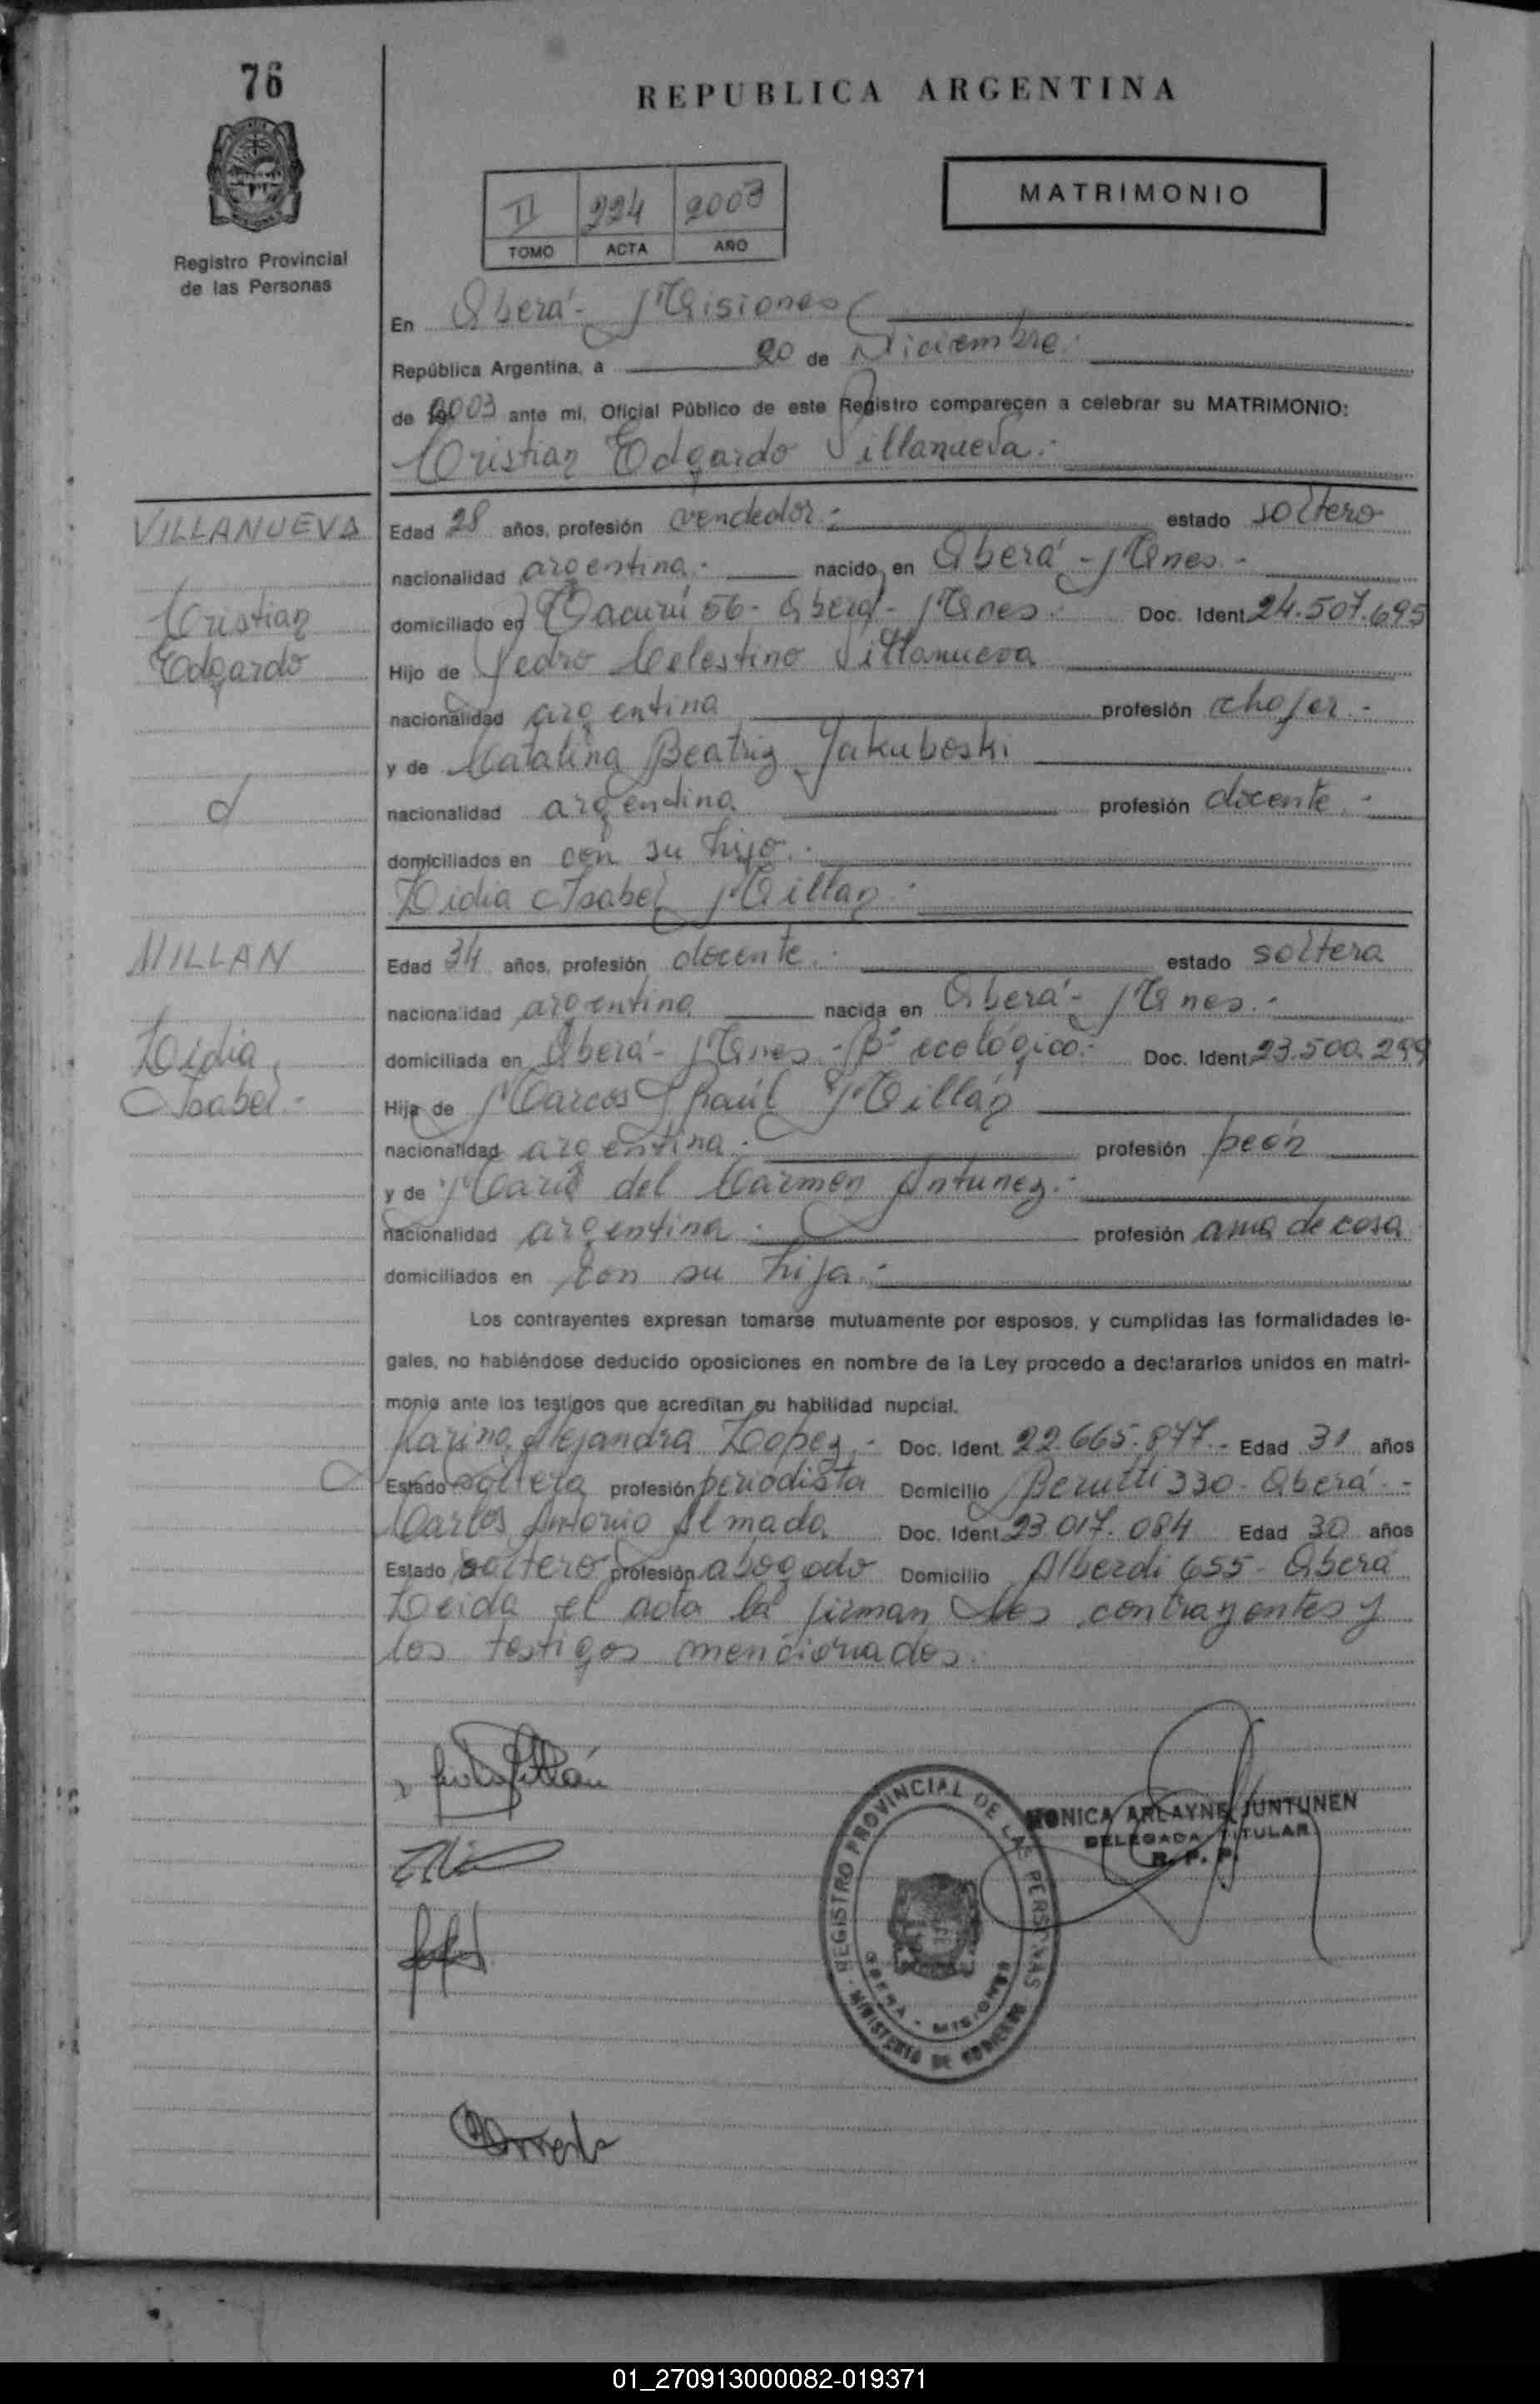 76
REPUBLICA ARGENTINA
II 224 2003
TOMO ACTA AÑO
MATRIMONIO
Registro Provincial
de las Personas
En Oberá - Misiones
República Argentina, a 20 de Diciembre.
de 2003 ante mi, Oficial Público de este Registro comparecen a celebrar su MATRIMONIO:
Cristian Edgardo Villanueva.-
VILLANUEVA
Cristian
Edgardo
Edad 28 años, profesión vendedor.- estado soltero
nacionalidad argentina.- nacido en Oberá - Mnes.-
domiciliado en 56 - Oberá - Mnes. Doc. Ident. 24.507.695
Hijo de Pedro Celestino Villanueva
nacionalidad argentina profesión chofer.-
y de Catalina Beatriz Yakuboski
nacionalidad argentina profesión docente.-
domiciliados en con su hijo.-
Lidia Isabel Millan.
MILLAN
Lidia
Isabel.-
Edad 34 años, profesión docente.- estado soltera
nacionalidad argentina nacida en Oberá - Mnes.-
domiciliada en Oberá - Mnes - Bº ecológico.- Doc. Ident. 23.500.299
Hija de Marcos Raúl Millán
nacionalidad argentina.- profesión peón
y de María del Carmen Antunez.-
nacionalidad argentina.- profesión ama de casa
domiciliados en con su hija.-
Los contrayentes expresan tomarse mutuamente por esposos, y cumplidas las formalidades le-
gales, no habiéndose deducido oposiciones en nombre de la Ley procedo a declararlos unidos en matri-
monio ante los testigos que acreditan su habilidad nupcial.
Karina Alejandra Lopez.- Doc. Ident. 22.665.877.- Edad 31 años
Estado soltera profesión periodista Domicilio Berutti 330 - Oberá.-
Carlos Antonio Almada Doc. Ident. 23.017.084 Edad 30 años
Estado soltero profesión abogado Domicilio Alberdi 655 - Oberá
Leida el acta la firman los contrayentes y
los testigos mencionados.
MONICA ARLAYNE JUNTUNEN
DELEGADA TITULAR
R. P. P.
REGISTRO PROVINCIAL DE LAS PERSONAS
OBERA - MISIONES
MINISTERIO DE GOBIERNO
01_270913000082-019371